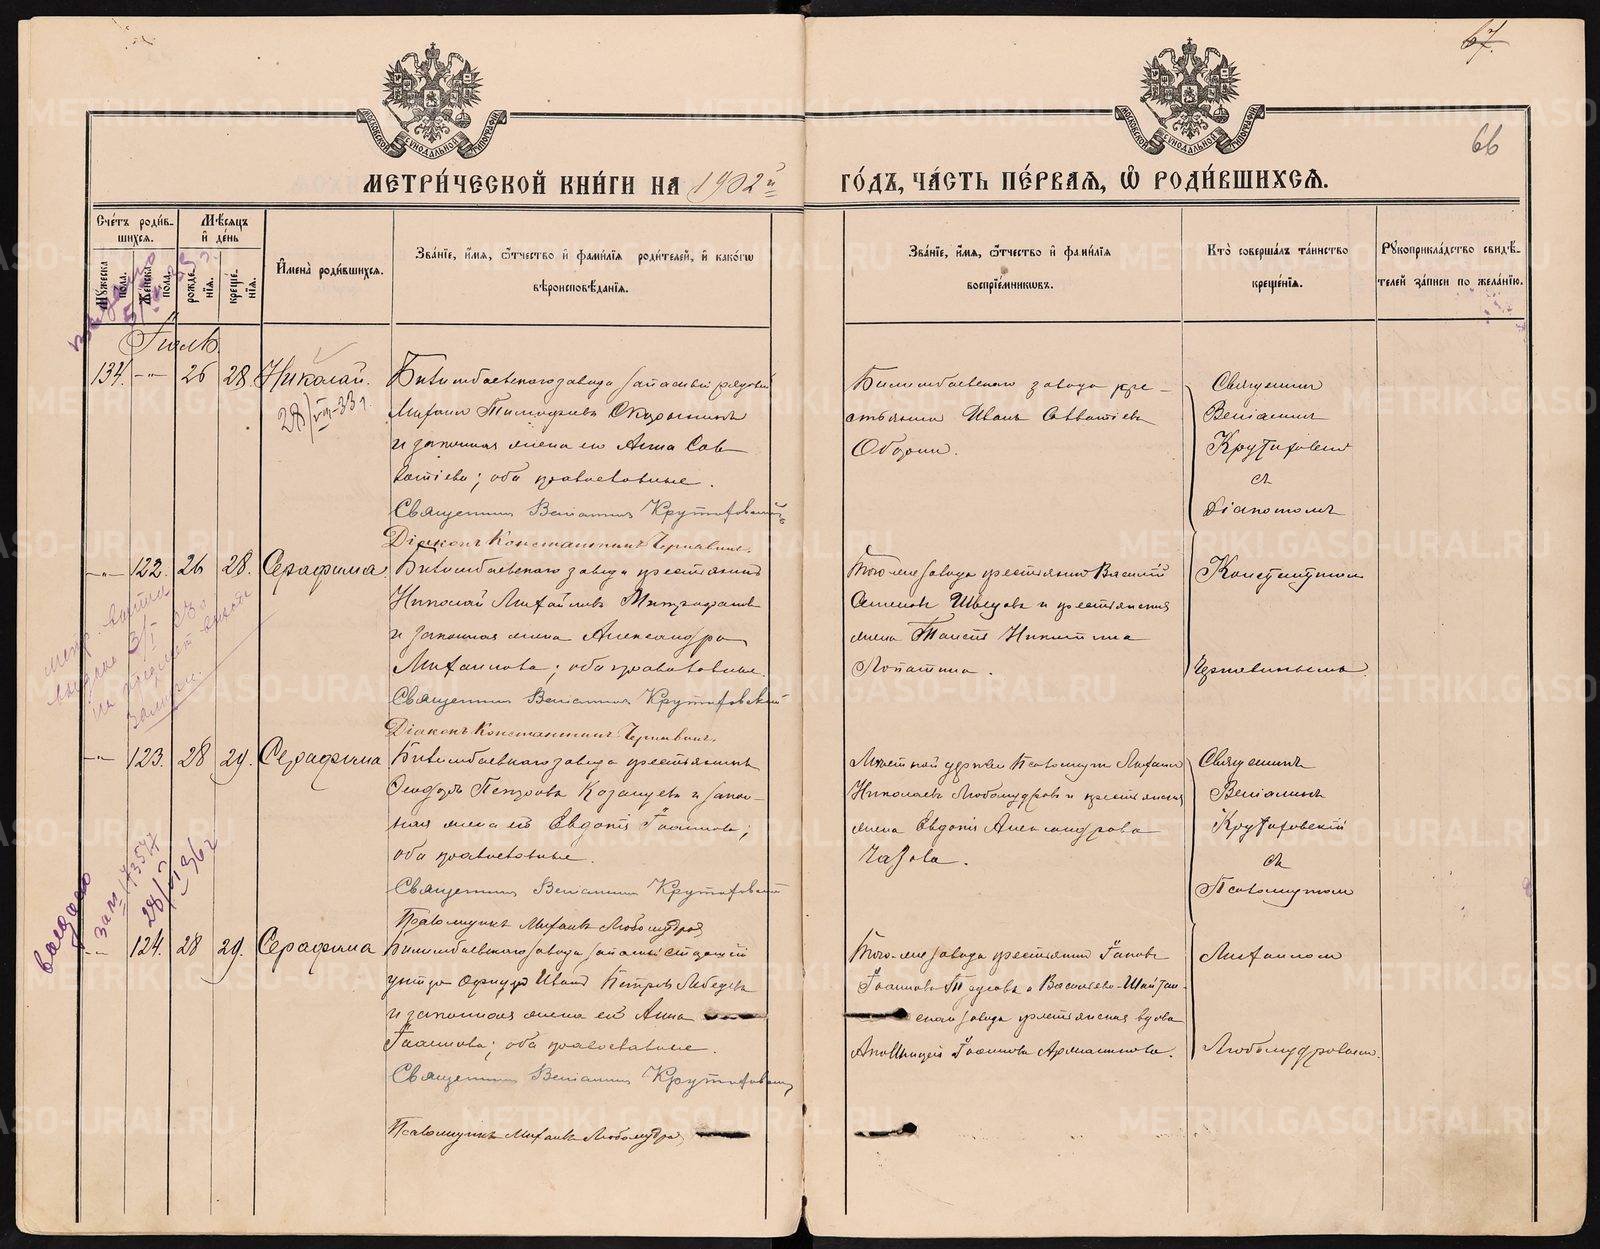 67.
66
МОСКОВСКОЙ СѴНОДАЛЬНОЙ ТИПОГРАФІИ
МОСКОВСКОЙ СѴНОДАЛЬНОЙ ТИПОГРАФІИ
МЕТРИ́ЧЕСКОЙ КНИ́ГИ НА 1902й ГО́ДЪ, ЧА́СТЬ ПЕ́РВАѦ, Ѡ҆ РОДИ́ВШИХСѦ.
Сче́тъ роди́в-
шихсѧ.
Мѣ́сѧцъ
и҆ де́нь
Мужеска пола.
Женска пола.
рожде́-
нїѧ.
креще́-
нїѧ.
И҆мена̀ роди́вшихсѧ.
Зва́нїе, и҆́мѧ, ѻ҆́тчество и҆ фами́лїѧ роди́телей, и҆ како́гѡ
вѣроисповѣ́данїѧ.
Зва́нїе, и҆́мѧ, ѻ҆́тчество и҆ фами́лїѧ
воспрїе́мникѡвъ.
Кто̀ соверша́лъ та́инство
креще́нїѧ.
Рꙋкоприкла́дство свидѣ́-
телей за́писи по жела́нїю.
Іюль
134. -"- 26 28 Николай.
28/VII-33 г.
Билимбаевского завода запасный рядовой
Михаилъ Тимофеевъ
и законная жена его Анна Сав
ватіева; оба православные.
Священникъ Веніаминъ Крутиховскій
Діаконъ Константинъ Чернавинъ.
Билимбаевского завода кре-
стьянинъ Иванъ Савватіевъ
Оборин.
Священникъ
Веніаминъ
Крутиховскій
съ
Діакономъ
-"- 122. 26 28. Серафима
Билимбаевского завода крестьянинъ
Николай Михайловъ Митрофановъ
и законная жена Александра
Михаилова; оба православные.
Священникъ Веніаминъ Крутиховскій
Діаконъ Константинъ Чернавинъ.
Того-же завода крестьянинъ Василій
Семеновъ Швецовъ и крестьянская
жена Таисія Никитина
Лопатина.
Константиномъ
Чернавинымъ.
-"- 123. 28 29. Серафима
Билимбаевского завода крестьянинъ
Феодоръ Петровъ Казанцевъ и закон-
ная жена его Евдокія Іоаннова;
оба православные.
Священникъ Веніаминъ Крутиховскій
Псаломщикъ Михаилъ Любомудровъ
Мѣстной церкви Псаломщикъ Михаилъ
Николаевъ Любомудровъ и крестьянская
жена Евдокія Александрова
Чазова.
Священникъ
Веніаминъ
Крутиховскій
съ
Псаломщикомъ
выдано
28/VI 36 г
-"- 124. 28 29. Серафима
Билимбаевского завода запасный старшій
унтеръ офицеръ Иванъ Петровъ Лебедевъ
и законная жена его Анна
Іоаннова; оба православные.
Священникъ Веніаминъ Крутиховскій
Псаломщикъ Михаилъ Любомудровъ
Того-же завода крестьянинъ Іаковъ
Іоанновъ и Васильево-Шайтан-
скаго завода крестьянская вдова
Іоаннова
Михаиломъ
Любомудровымъ.
METRIKI.GASO-URAL.RU